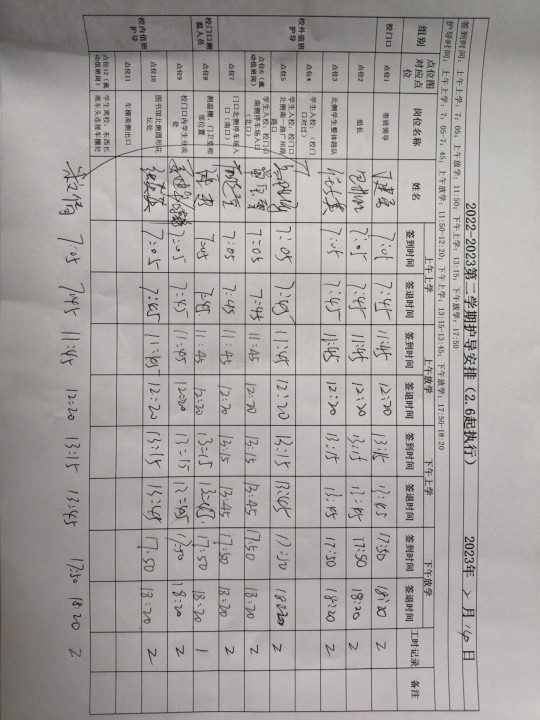 2022-2023第二学期护导安排(2.6起执行)
2023年 2 月 日
签到时间:上午上学:7:05;上午放学:11:50;下午上学:13:15;下午放学:17:50
护导时间:上午上学:7:05-7:45;上午放学:11:50-12:20;下午上学:13:15-13:45;下午放学:17:50-18:20
组别 点位图对应点位 岗位名称 姓名 上午上学 上午放学 下午上学 下午放学 工时记录 备注
签到时间 签退时间 签到时间 签退时间 签到时间 签退时间 签到时间 签退时间
校门口 点位1 带班领导 7:05 7:45 11:45 12:20 13:15 13:45 17:50 18:20 2
点位2 组长 7:05 7:45 11:45 12:20 13:15 13:45 17:50 18:20 2
点位3 北侧学生整体路队 7:05 7:45 11:45 12:20 13:15 13:45 17:50 18:20 2
校外值班护导 点位4 学生入校,(校门口对过)
点位5 学生入校,校门口北侧南一路广州路路口 7:05 7:45 11:45 12:20 13:15 13:45 17:50 18:20 2
点位6(流动值班岗) 学生入校,校门口南侧停车场入口(北口) 7:05 7:45 11:45 12:20 13:15 13:45 17:50 18:20 2
点位7 门口北侧停车场入口(南口) 7:05 7:45 11:45 12:20 13:15 13:45 17:50 18:20 2
校门口测温人员 点位8 测温棚,门卫室相邻位置 7:05 7:45 11:45 12:20 13:15 13:45 17:50 18:20 1
点位9 校门口内学生分流处 7:05 7:45 11:45 12:20 13:15 13:45 17:50 18:20 2
校内值班护导 点位10 图书馆北侧圆形花坛处 7:05 7:45 11:45 12:20 13:15 13:45 17:50 18:20 2
点位11 车棚南侧出口
点位12(流动值班岗) 学生离校:东西长廊东头连接车棚处 7:05 7:45 11:45 12:20 13:15 13:45 17:50 18:20 2